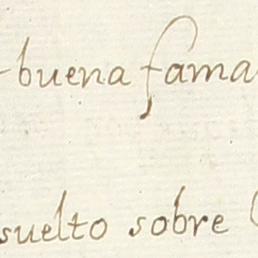 buena fama
suelto sobre